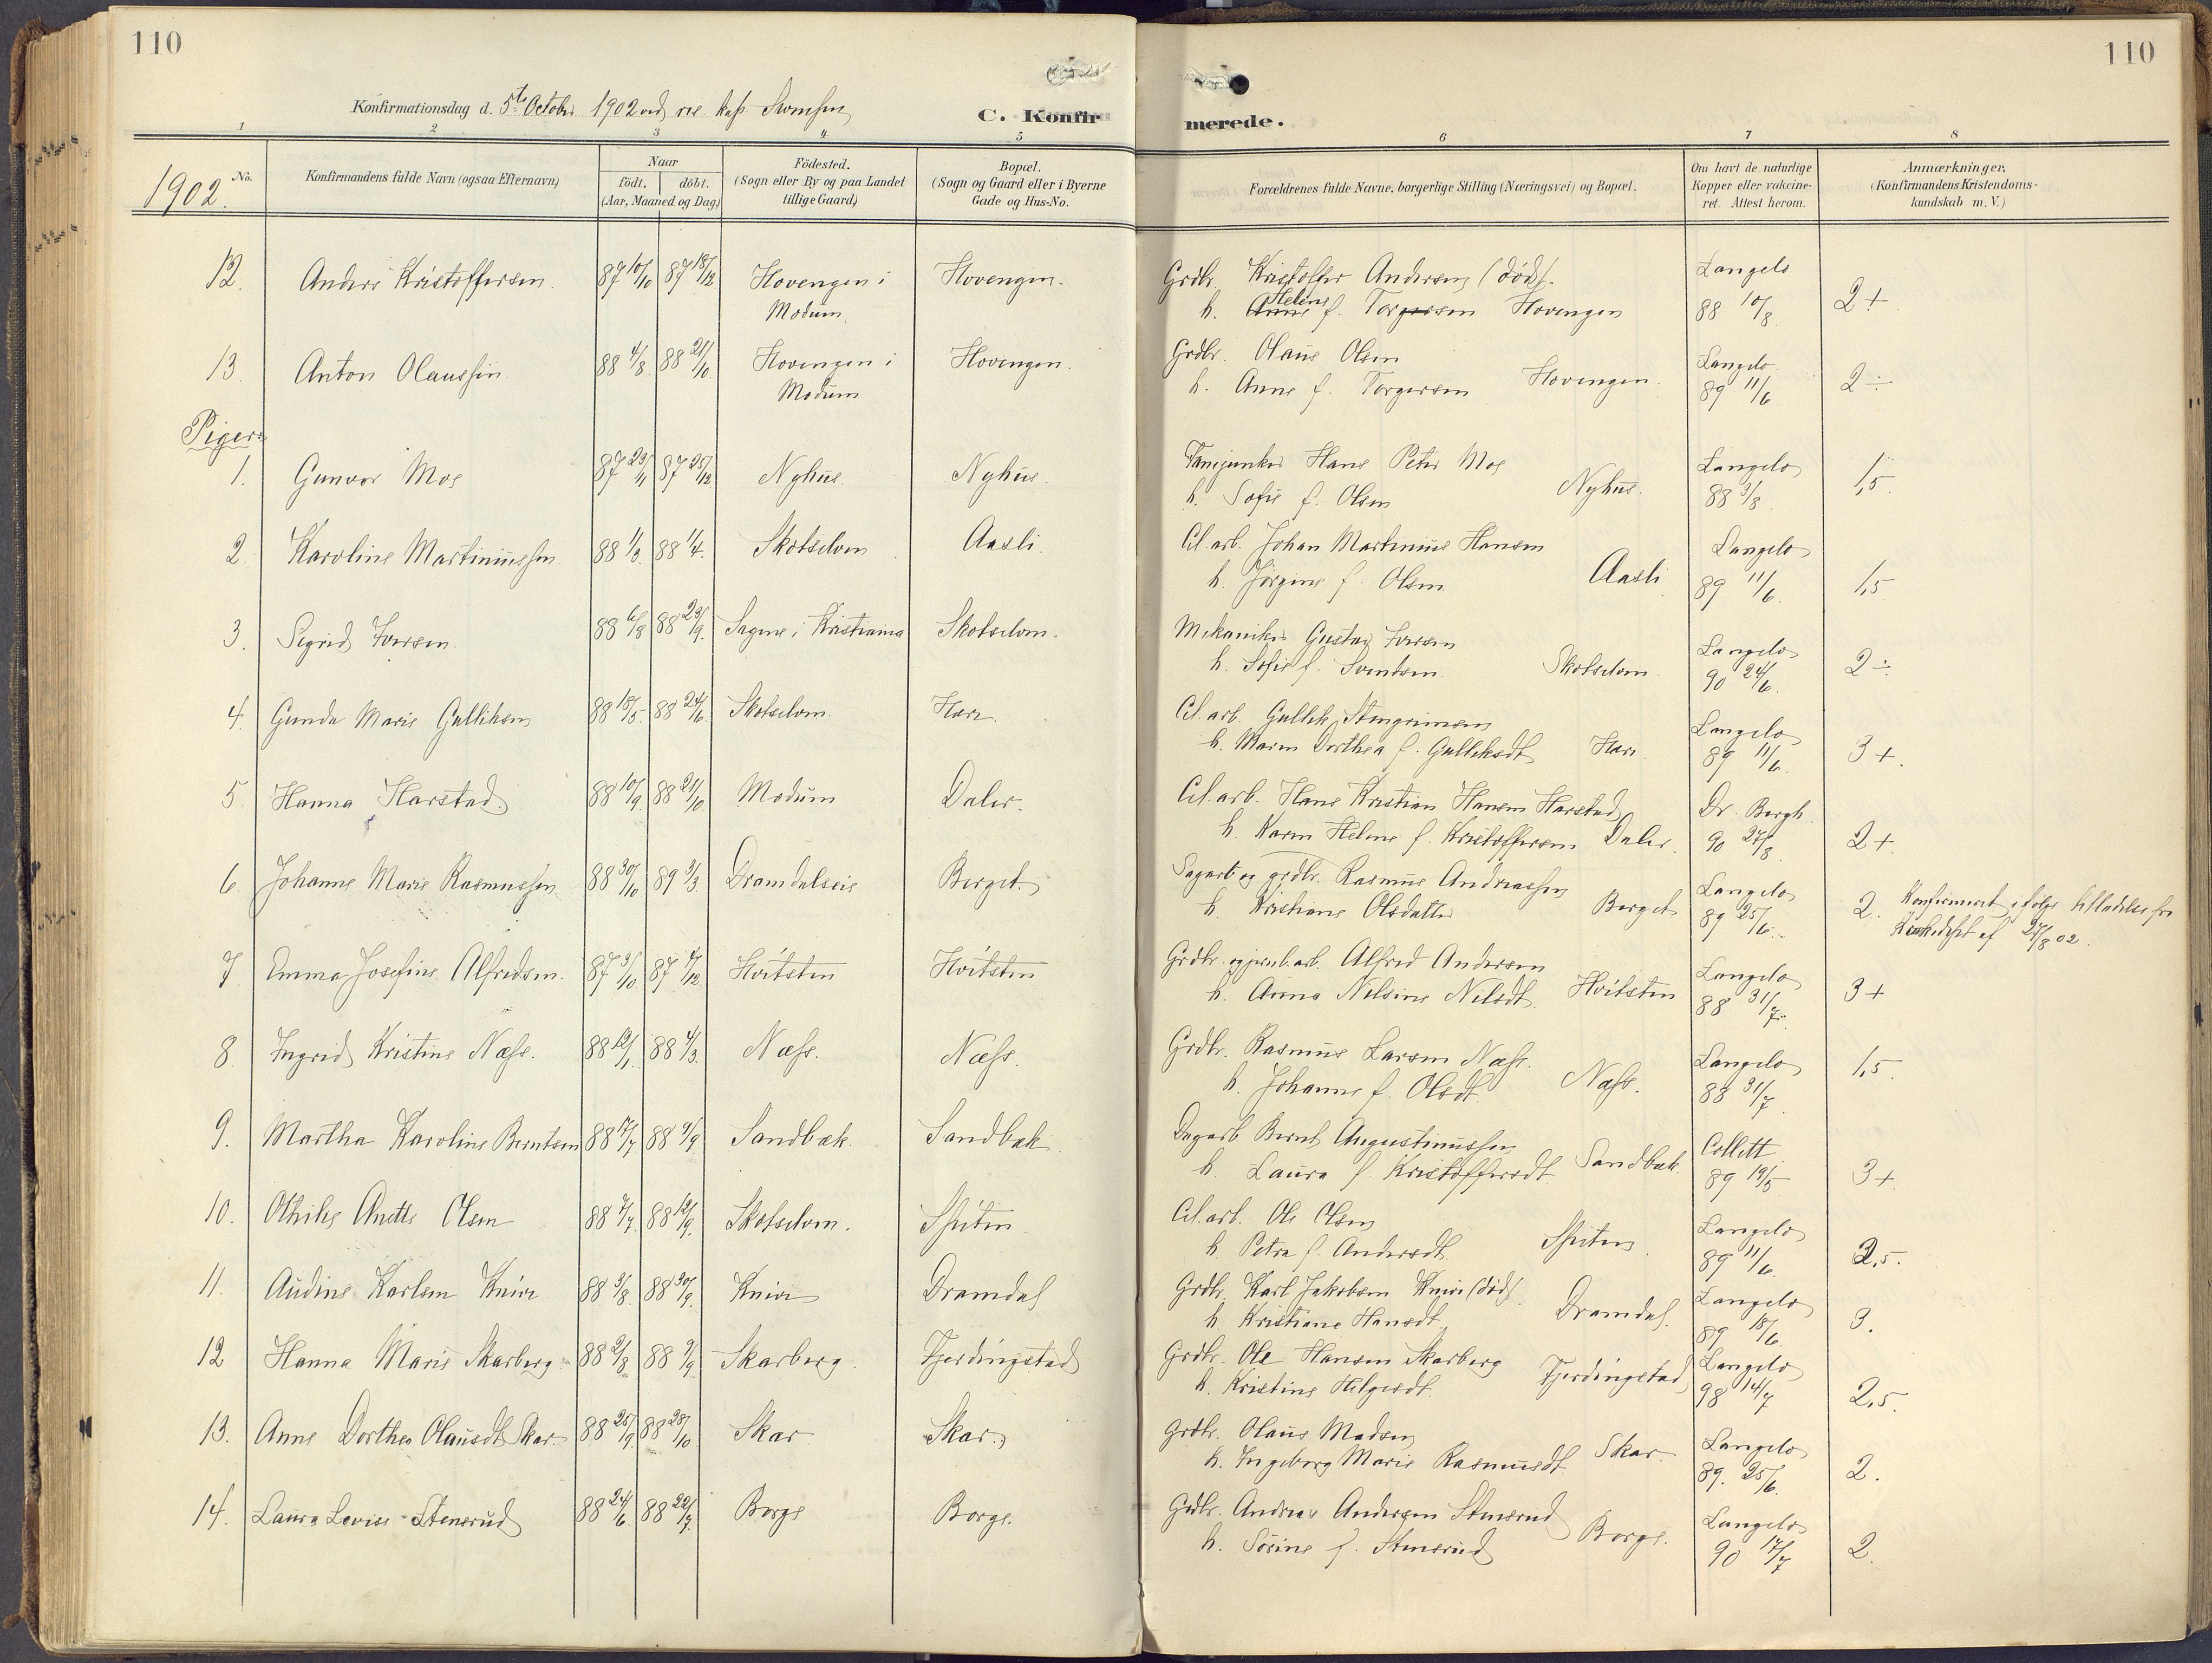 110
110
Konfirmationsdag d. 5te Octobr 1902 ved res kap Svensen
C. Konfirmerede.
1 2 3 4 5 6 7 8
1902.
No.
Konfirmandens fulde Navn (ogsaa Efternavn)
Naar
födt. döbt.
(Aar, Maaned og Dag)
Födested.
(Sogn eller By og paa Landet
tillige Gaard)
Bopæl.
(Sogn og Gaard eller i Byerne
Gade og Hus-No.
Forældrenes fulde Navne, borgerlige Stilling (Næringsvei) og Bopæl.
Om havt de naturlige
Kopper eller vakcine-
ret. Attest herom.
Anmærkninger.
(Konfirmandens Kristendoms-
kundskab m. V.)
12. Anders Kristoffersen. 87 10/10 87 18/12 Hovengen i Hovengen. Grdbr. Kristoffer Andersen (död). Langelo
Modum h. Anne Helene f. Torgersen Hovengen 88 10/8 2+
13 Anton Olaussen. 88 4/8 88 21/10 Hovengen i Hovengen. Grdbr. Olaus Olsen Langelo
Modum h. Anne f. Torgersen Hovengen. 89 11/6 2÷
Piger:
1. Gunvor Moe 87 23/11 87 25/12 Nyhus. Nyhus. Fanejunker Hans Peter Moe Langelo
h. Sofie f. Olsen Nyhus. 88 3/8 1,5
2. Karoline Martiniussen 88 1/3 88 1/4 Skotselven Aasli. Cel. arb. Johan Martinius Hansen Langelo
h. Jörgine f. Olsen Aasli 89 11/6 1,5
3. Sigrid Iversen 88 6/8 88 23/9 Sagene i Kristiania Skotselven. Mekaniker Gustav Iversen Langelo
h. Sofie f. Svendsen Skotselven. 90 24/6 2÷
4. Gunda Marie Gulliksen 88 18/5 88 24/6 Skotselven. Hære. Cel. arb. Gullik Stengrimsen Langelo
h. Maren Dorthea f. Gulliksdt. Hære. 89 11/6 3+.
5 Hanna Harstad. 88 10/9 88 21/10 Modum Daler. Cel. arb. Hans Kristian Hansen Harstad Dr. Bergh.
h. Karen Helene f. Kristoffersen Daler. 90 27/8 2+
6 Johanne Marie Rasmussen 88 30/10 89 3/3 Dramdalseie Berget. Sagarb og grdbr. Rasmus Andreassen Langelo
h. Kristiane Olsdatter Berget 89 25/6 2. Konfirmeret ifölge tilladelse fra
Kirkedept af 27/8 02.
7 Emma Josefine Alfredsen. 87 31/10 87 4/12 Hvitsten Hvitsten Grdbr. og jernb.arb. Alfred Andersen Langelo
h. Anna Nilsine Nilsdt. Hvitsten 88 31/7 3+
8 Ingrid Kristine Næss. 88 12/1 88 4/3 Næss. Næss. Grdbr. Rasmus Larsen Næss. Langelo
h. Johanne f. Olsdt. Næss. 88 31/7 1,5.
9. Martha Karoline Berntsen 88 17/7 88 9/9 Sandbæk. Sandbæk Dagarb Bernt Augustinussen Collett
h. Laura f. Kristoffersdt. Sandbæk. 89 19/5 3+
10. Othilie Anette Olsen 88 7/7 88 12/9 Skotselven. Sputen Cel. arb. Ole Olsen Langelo
h Petra f. Andersdt. Sputen 89 11/6 2,5.
11. Audine Karlsen Knive 88 3/8 88 30/9 Knive Dramdal Grdbr. Karl Jakobsen Knive (död) Langelo
h. Kristiane Hansdt. Dramdal. 89 18/6 3.
12 Hanna Marie Skarberg 88 2/8 88 9/9 Skarberg. Fjerdingstad Grdbr. Ole Hansen Skarberg Langelo
h. Kristine Helgesdt. Fjerdingstad 98 14/7 2,5.
13. Anne Dorthea Olausdt Skar. 88 25/9 88 28/10 Skar Skar. Grdbr. Olaus Madsen Langelo
h. Ingeborg Marie Rasmusdt. Skar. 89. 25/6. 2.
14. Laura Lovise Stenerud 88 24/6 88 22/7 Borge Borge. Grdbr. Andreas Andersen Stenerud Langelo
h. Sörine f. Stenerud Borge. 90 17/7 2.